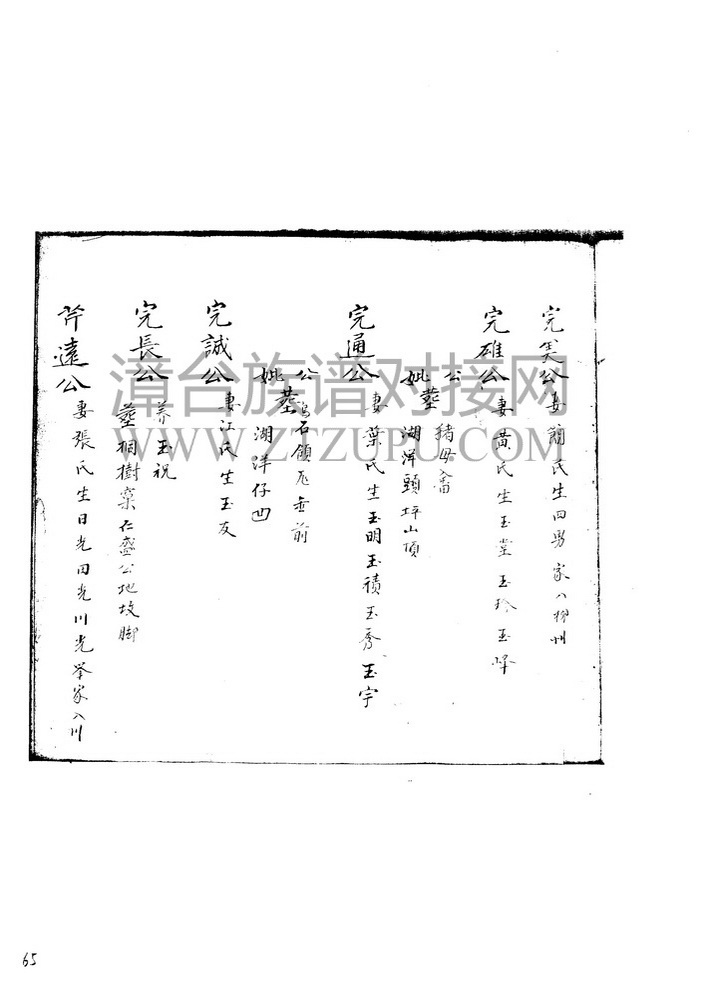 完美公 妻簡氏生四男家入柳州
完雄公 妻黃氏生玉堂玉玲玉峰
公 豬母畬
妣塟 湖洋頭坪山頂
完通公 妻葉氏生玉明玉積玉秀玉宇
公 石領瓦垂前
妣塟 湖洋仔凹
完誠公 妻江氏生玉友
完長公 养玉祝
塟桐樹窠仁盛公地坟脚
斧遠公 妻張氏生日光田光川光举家入川
漳台族谱对接网
WWW.ZTZUPU.COM
65